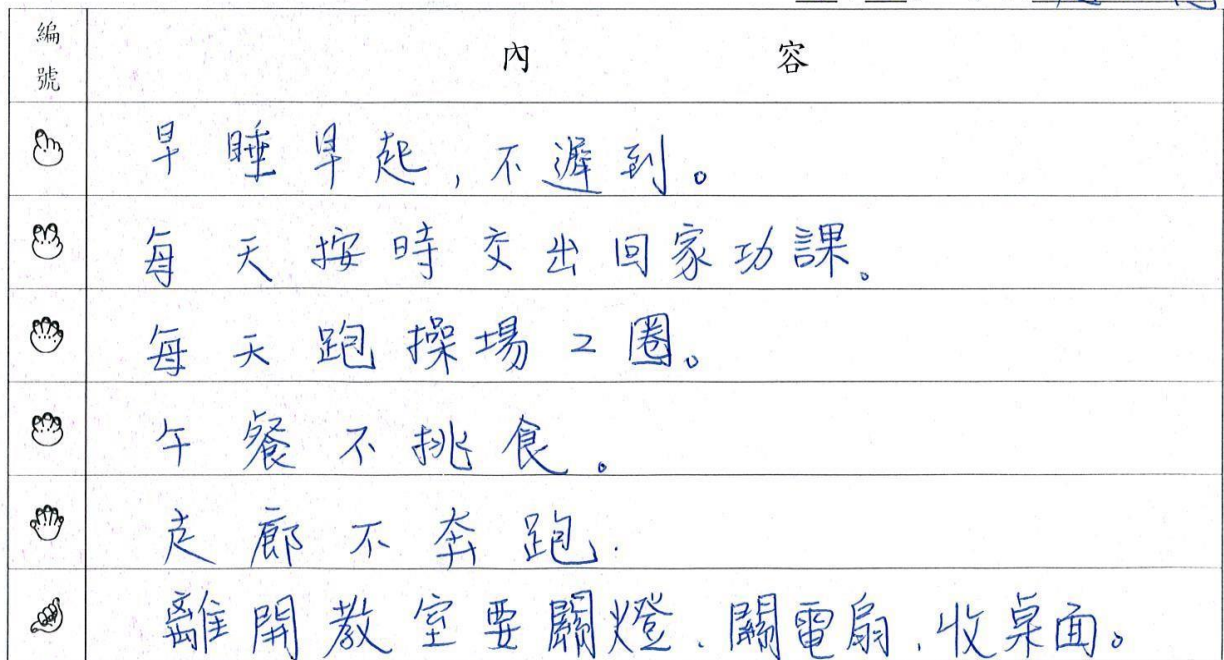 編號
內容
早睡早起,不遲到。
每天按時交出回家功課。
每天跑操場2圈。
午餐不挑食。
走廊不奔跑.
離開教室要關燈、關電扇、收桌面。